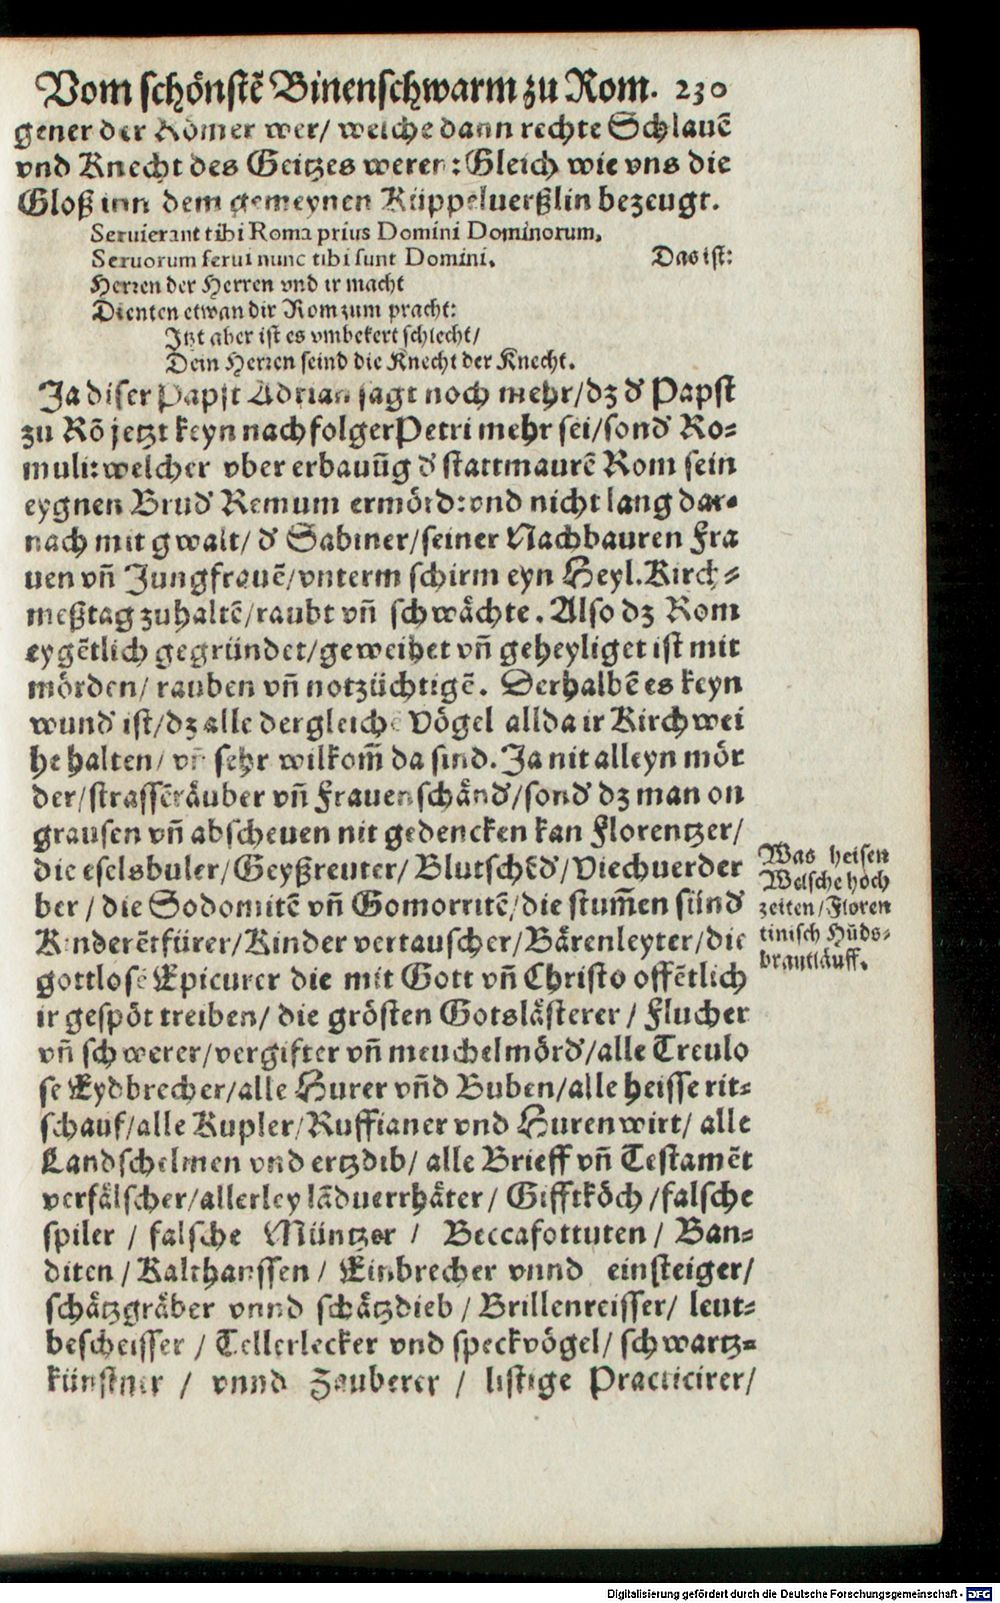 Vom schönstẽ Binenschwarm zu Rom. 230
gener der Römer wer/ welche dann rechte Schlauẽ
vnd Knecht des Geitzes weren: Gleich wie vns die
Gloß inn dem gemeynen Rüppelverßlin bezeugt.
Seruierant tibi Roma prius Domini Dominorum,
Seruorum serui nunc tibi sunt Domini. Das ist:
Herren der Herren vnd ir macht
Dienten etwan dir Rom zum pracht:
Itzt aber ist es vmbekert schlecht/
Dein Herren seind die Knecht der Knecht.
Ja diser Papst Adrian sagt noch mehr/ dz d' Papst
zu Rõ jetzt keyn nachfolger Petri mehr sei/ sond' Ro-
muli: welcher vber erbauũg d' stattmaurẽ Rom sein
eygnen Brud' Remum ermörd: vnd nicht lang dar-
nach mit gwalt/ d' Sabiner/ seiner Nachbauren Fra
uen vñ Jungfrauẽ/ vnterm schirm eyn Heyl. Kirch-
meßtag zuhaltẽ/ raubt vñ schwächte. Also dz Rom
eygẽtlich gegründet/ geweihet vñ geheyliget ist mit
mörden/ rauben vñ notzüchtigẽ. Derhalbẽ es keyn
wund' ist/ dz alle dergleichẽ Vögel allda ir Kirchwei
he halten/ vñ sehr wilkom̃ da sind. Ja nit alleyn mör
der/ strassẽräuber vñ Frauenschänd'/ sond' dz man on
grausen vñ abscheuen nit gedencken kan Florentzer/
die eselsbuler/ Geyßreuter/ Blutschẽd'/ Viechuerder
ber/ die Sodomitẽ vñ Gomorritẽ/ die stum̃en sünd'
Kinderẽtfürer/ Kinder vertauscher/ Bärenleyter/ die
gottlosẽ Epicurer die mit Gott vñ Christo offẽtlich
ir gespöt treiben/ die grösten Gotslästerer/ Flucher
vñ schwerer/ vergifter vñ meuchelmörd'/ alle Treulo
se Eydbrecher/ alle Hurer vñd Buben/ alle heisse rit-
schauf/ alle Kupler/ Ruffianer vnd Hurenwirt/ alle
Landschelmen vnd ertzdib/ alle Brieff vñ Testamẽt
verfälscher/ allerley lãduerrhäter/ Gifftköch/ falsche
spiler/ falsche Müntzer/ Beccafottuten/ Ban-
diten/ Kalthanssen/ Einbrecher vnnd einsteiger/
schätzgräber vnnd schätzdieb/ Brillenreisser/ leut-
bescheisser/ Tellerlecker vnd speckvögel/ schwartz-
künstner/ vnnd Zauberer/ listige Practicirer/
Was heisen
Welsche hoch
zeiten/ Floren
tinisch Hũds-
brautläuff.
Digitalisierung gefördert durch die Deutsche Forschungsgemeinschaft - DFG